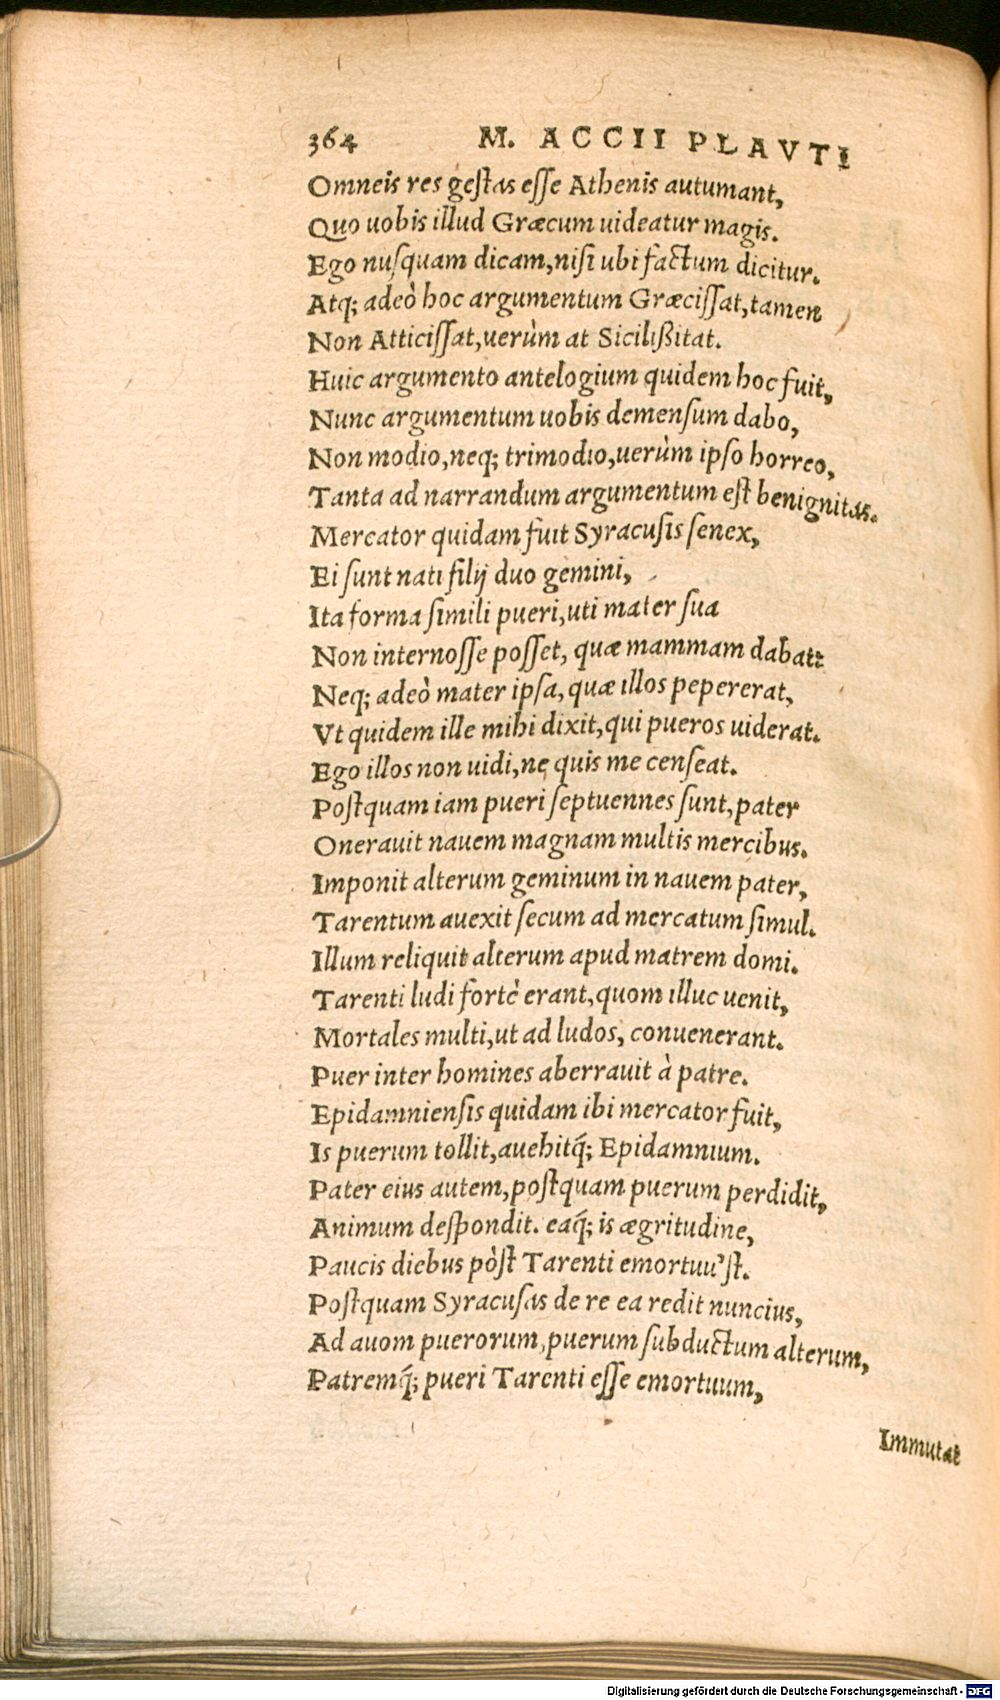 364 M. ACCII PLAVTI
Omneis res gestas esse Athenis autumant,
Quo uobis illud Græcum uideatur magis.
Ego nusquam dicam, nisi ubi factum dicitur.
Atq; adeò hoc argumentum Græcissat, tamen
Non Atticissat, uerùm at Sicilißitat.
Huic argumento antelogium quidem hoc fuit,
Nunc argumentum uobis demensum dabo,
Non modio, neq; trimodio, uerùm ipso horreo,
Tanta ad narrandum argumentum est benignitas.
Mercator quidam fuit Syracusis senex,
Ei sunt nati filij duo gemini,
Ita forma simili pueri, uti mater sua
Non internosse posset, quæ mammam dabat:
Neq; adeò mater ipsa, quæ illos pepererat,
Vt quidem ille mihi dixit, qui pueros uiderat.
Ego illos non uidi, ne quis me censeat.
Postquam iam pueri septuennes sunt, pater
Onerauit nauem magnam multis mercibus.
Imponit alterum geminum in nauem pater,
Tarentum auexit secum ad mercatum simul.
Illum reliquit alterum apud matrem domi.
Tarenti ludi fortè erant, quom illuc uenit,
Mortales multi, ut ad ludos, conuenerant.
Puer inter homines aberrauit à patre.
Epidamniensis quidam ibi mercator fuit,
Is puerum tollit, auehitq́; Epidamnium.
Pater eius autem, postquam puerum perdidit,
Animum despondit. eaq́; is ægritudine,
Paucis diebus pòst Tarenti emortuu'st.
Postquam Syracusas de re ea redit nuncius,
Ad auom puerorum, puerum subductum alterum,
Patremq́; pueri Tarenti esse emortuum,
Immutat
Digitalisierung gefördert durch die Deutsche Forschungsgemeinschaft - DFG